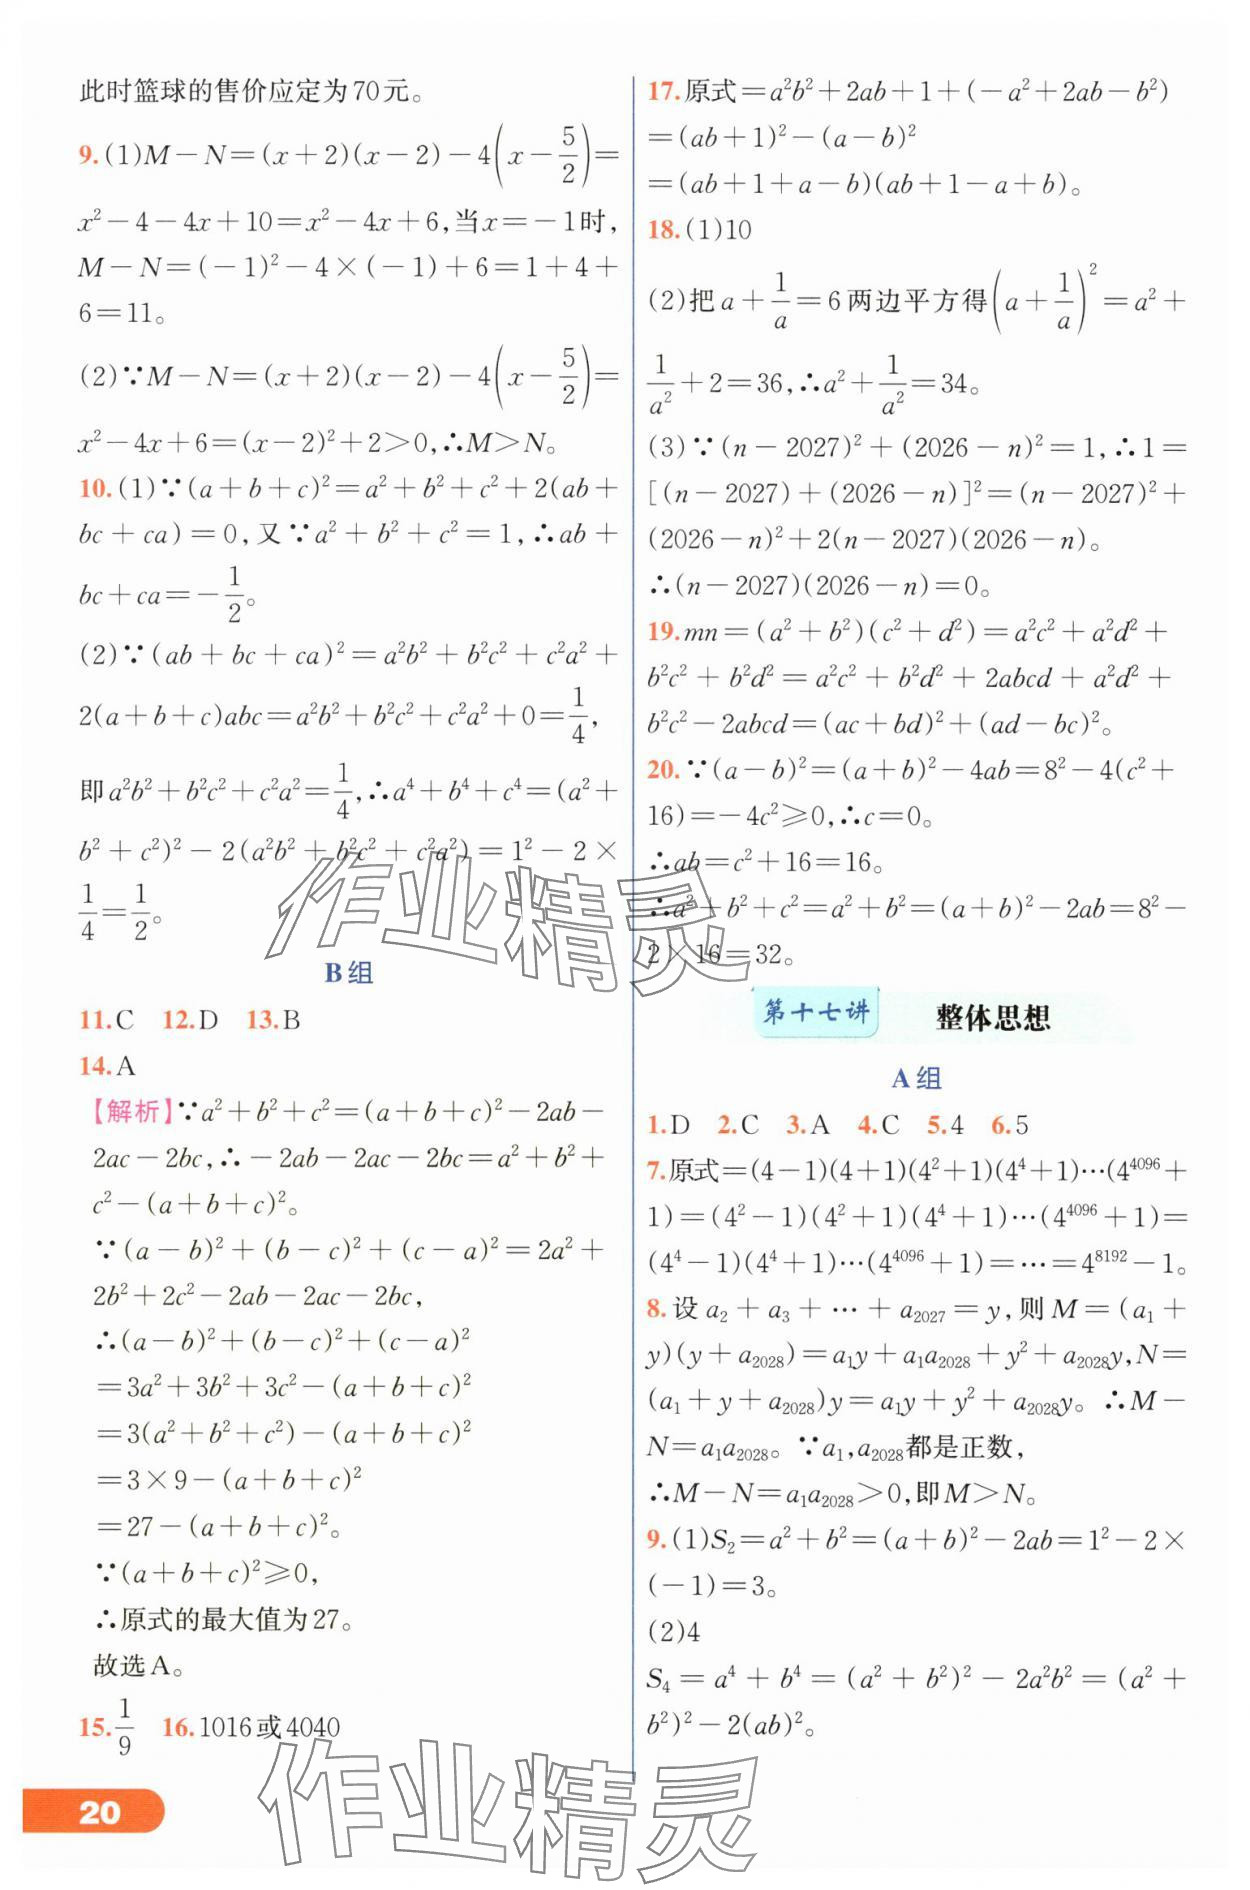 此时篮球的售价应定为70元。
9.(1)M－N＝(x＋2)(x－2)－4(x－5/2)＝
x²－4－4x＋10＝x²－4x＋6,当x＝－1时,
M－N＝(－1)²－4×(－1)＋6＝1＋4＋
6＝11。
(2)∵M－N＝(x＋2)(x－2)－4(x－5/2)＝
x²－4x＋6＝(x－2)²＋2＞0,∴M＞N。
10.(1)∵(a＋b＋c)²＝a²＋b²＋c²＋2(ab＋
bc＋ca)＝0,又∵a²＋b²＋c²＝1,∴ab＋
bc＋ca＝－1/2。
(2)∵(ab＋bc＋ca)²＝a²b²＋b²c²＋c²a²＋
2(a＋b＋c)abc＝a²b²＋b²c²＋c²a²＋0＝1/4,
即a²b²＋b²c²＋c²a²＝1/4,∴a⁴＋b⁴＋c⁴＝(a²＋
b²＋c²)²－2(a²b²＋b²c²＋c²a²)＝1²－2×
1/4＝1/2。
B组
11.C 12.D 13.B
14.A
【解析】∵a²＋b²＋c²＝(a＋b＋c)²－2ab－
2ac－2bc,∴－2ab－2ac－2bc＝a²＋b²＋
c²－(a＋b＋c)²。
∵(a－b)²＋(b－c)²＋(c－a)²＝2a²＋
2b²＋2c²－2ab－2ac－2bc,
∴(a－b)²＋(b－c)²＋(c－a)²
＝3a²＋3b²＋3c²－(a＋b＋c)²
＝3(a²＋b²＋c²)－(a＋b＋c)²
＝3×9－(a＋b＋c)²
＝27－(a＋b＋c)²。
∵(a＋b＋c)²≥0,
∴原式的最大值为27。
故选A。
15.1/9 16.1016或4040
20
17.原式＝a²b²＋2ab＋1＋(－a²＋2ab－b²)
＝(ab＋1)²－(a－b)²
＝(ab＋1＋a－b)(ab＋1－a＋b)。
18.(1)10
(2)把a＋1/a＝6两边平方得(a＋1/a)²＝a²＋
1/a²＋2＝36,∴a²＋1/a²＝34。
(3)∵(n－2027)²＋(2026－n)²＝1,∴1＝
[(n－2027)＋(2026－n)]²＝(n－2027)²＋
(2026－n)²＋2(n－2027)(2026－n)。
∴(n－2027)(2026－n)＝0。
19.mn＝(a²＋b²)(c²＋d²)＝a²c²＋a²d²＋
b²c²＋b²d²＝a²c²＋b²d²＋2abcd＋a²d²＋
b²c²－2abcd＝(ac＋bd)²＋(ad－bc)²。
20.∵(a－b)²＝(a＋b)²－4ab＝8²－4(c²＋
16)＝－4c²≥0,∴c＝0。
∴ab＝c²＋16＝16。
∴a²＋b²＋c²＝a²＋b²＝(a＋b)²－2ab＝8²－
2×16＝32。
第十七讲 整体思想
A组
1.D 2.C 3.A 4.C 5.4 6.5
7.原式＝(4－1)(4＋1)(4²＋1)(4⁴＋1)⋯(4⁴⁰⁹⁶＋
1)＝(4²－1)(4²＋1)(4⁴＋1)⋯(4⁴⁰⁹⁶＋1)＝
(4⁴－1)(4⁴＋1)⋯(4⁴⁰⁹⁶＋1)＝⋯＝4⁸¹⁹²－1。
8.设a₂＋a₃＋⋯＋a₂₀₂₇＝y,则M＝(a₁＋
y)(y＋a₂₀₂₈)＝a₁y＋a₁a₂₀₂₈＋y²＋a₂₀₂₈y,N＝
(a₁＋y＋a₂₀₂₈)y＝a₁y＋y²＋a₂₀₂₈y。∴M－
N＝a₁a₂₀₂₈。∵a₁,a₂₀₂₈都是正数,
∴M－N＝a₁a₂₀₂₈＞0,即M＞N。
9.(1)S₂＝a²＋b²＝(a＋b)²－2ab＝1²－2×
(－1)＝3。
(2)4
S₄＝a⁴＋b⁴＝(a²＋b²)²－2a²b²＝(a²＋
b²)²－2(ab)²。
作业精灵
作业精灵